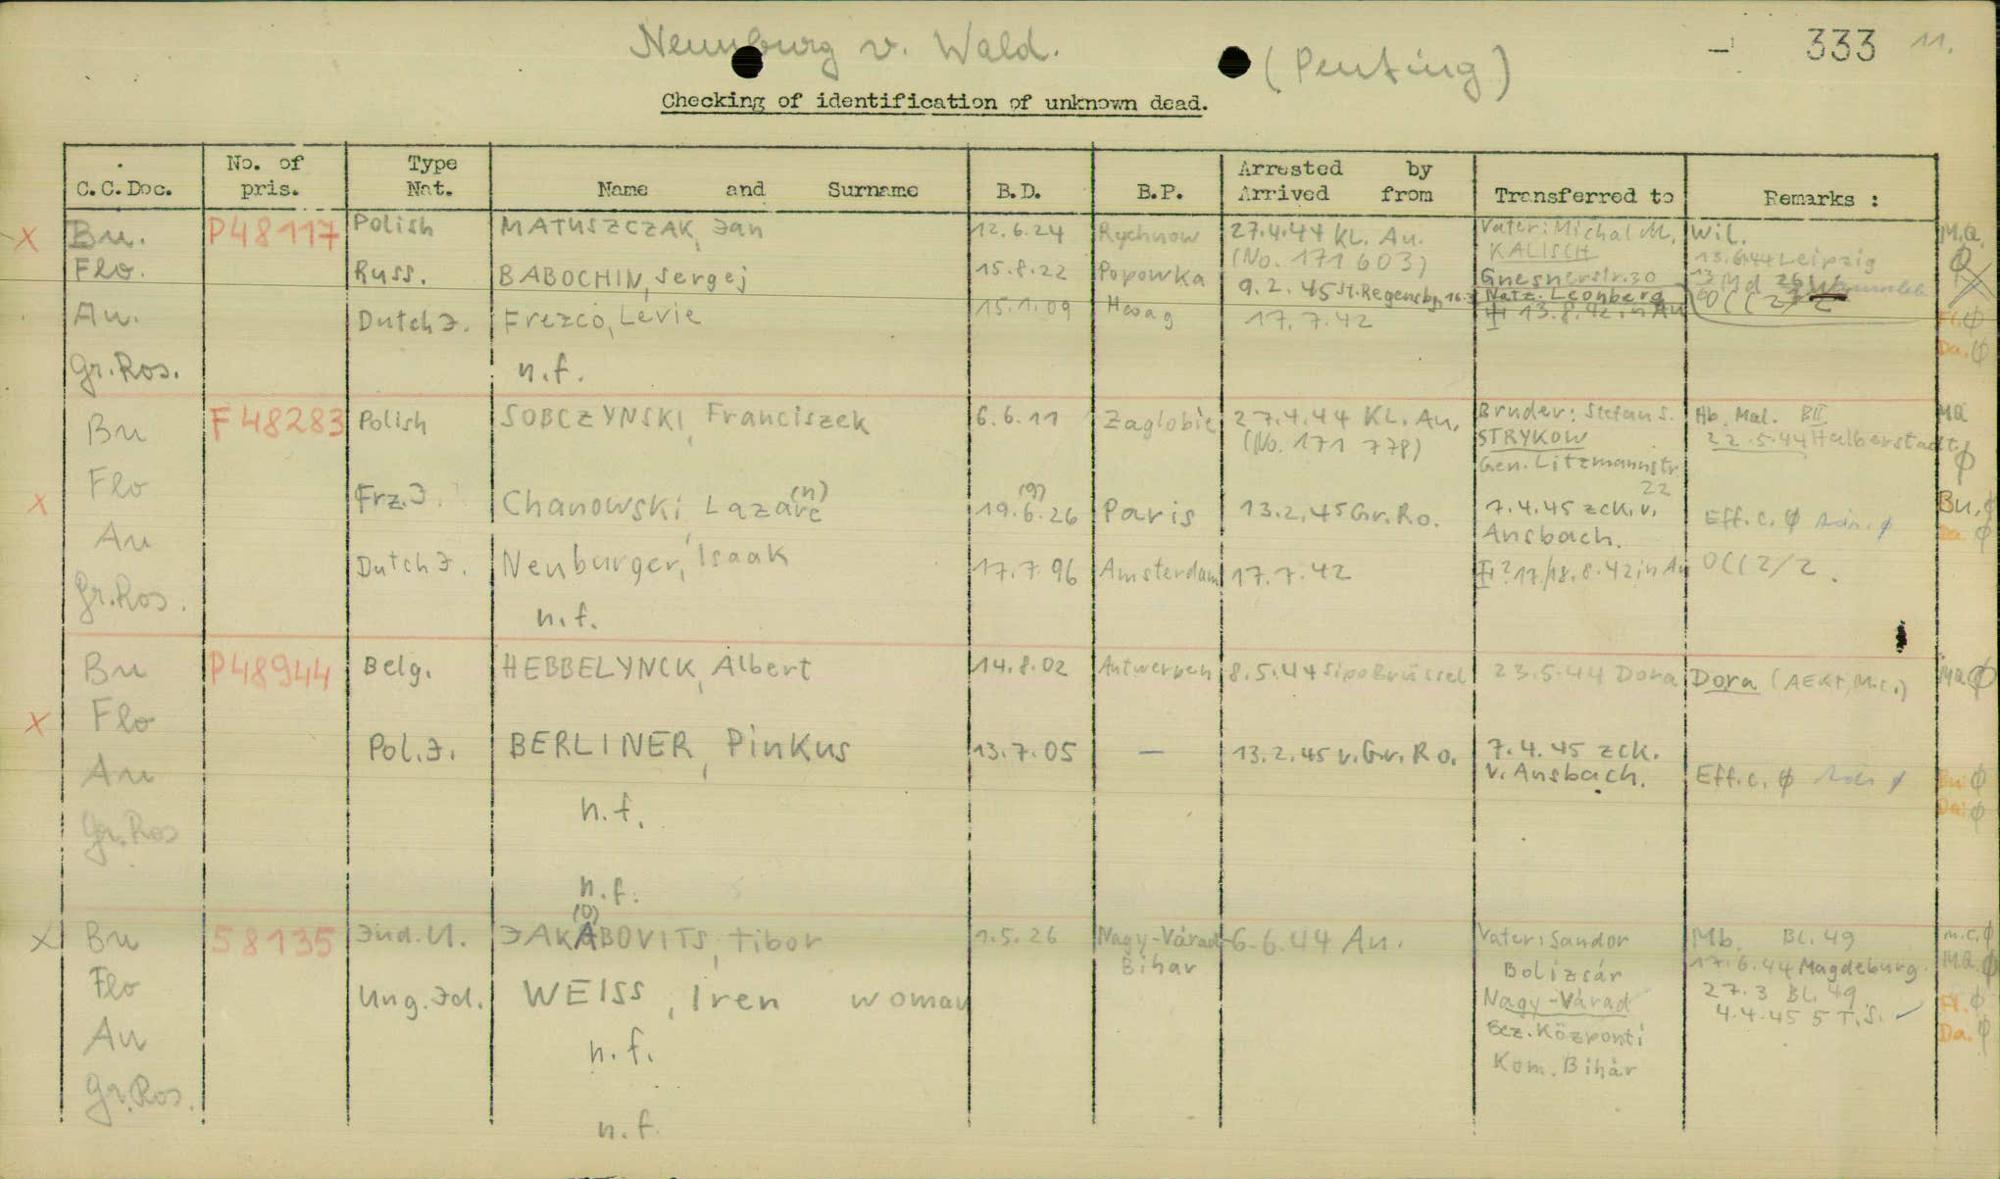 Neunburg v. Wald. (Penting) - 333 11.
Checking of identification of unknown dead.
C.C.Doc. No. of pris. Type Nat. Name and Surname B.D. B.P. Arrested by Arrived from Transferred to Remarks :
X Bu. P48117 Polish MATUSZCZAK, Jan 12.6.24 Rychnow 27.4.44 KL. Au. Vater: Michal M. Wil. M.Q.
(No. 171603) KALISCH 13.6.44 Leipzig
Flo. Russ. BABOCHIN, Sergej 15.8.22 Popowka 9.2.45 St. Regensbg. Gnesnerstr. 30
Natz. Leonberg
Au. Dutch J. Frezco, Levie 15.1.09 Haag 17.7.42 13.8.42 in Au OCC 2/2 Fl. Ø
Da. Ø
Gr.Ros. n.f.
Bu F48283 Polish SOBCZYNSKI, Franciszek 6.6.11 Zaglobie 27.4.44 KL. Au. Bruder: Stefan S. Hb. Mal. BII MQ
(No. 171 778) STRYKOW 22.5.44 Halberstadt Ø
Gen. Litzmannstr.
22
Flo Frz.J. Chanowski, Lazare (n) 19.6.26 (9) Paris 13.2.45 Gr.Ro. 7.4.45 zck. v. Bu. Ø
X Ansbach. Eff.c. Ø Da. Ø
Au Dutch J. Neuburger, Isaak 17.7.96 Amsterdam 17.7.42 17./18.8.42 in Au OCC 2/2.
Gr.Ros. n.f.
Bu P48944 Belg. HEBBELYNCK, Albert 14.8.02 Antwerpen 8.5.44 Sipo Brüssel 23.5.44 Dora Dora MQ Ø
X Flo
Pol.J. BERLINER, Pinkus 13.7.05 — 13.2.45 v. Gr. Ro. 7.4.45 zck.
Au v. Ansbach. Eff.c. Ø Bu Ø
n.f. Da. Ø
Gr.Ros
n.f.
(O)
X Bu 58135 Jüd.U. JAKABOVITS, Tibor 1.5.26 Nagy-Várad 6.6.44 Au. Vater: Sandor Mb. Bl. 49 m.c. Ø
Bihar Bolizsár 17.6.44 Magdeburg MQ. Ø
Flo Ung.Jd. WEISS, Iren woman Nagy-Várad 27.3 Bl. 49 Fl. Ø
Bez. Központi 4.4.45 5 T.S. Da. Ø
Au n.f. Kom. Bihár
Gr.Ros.
n.f.